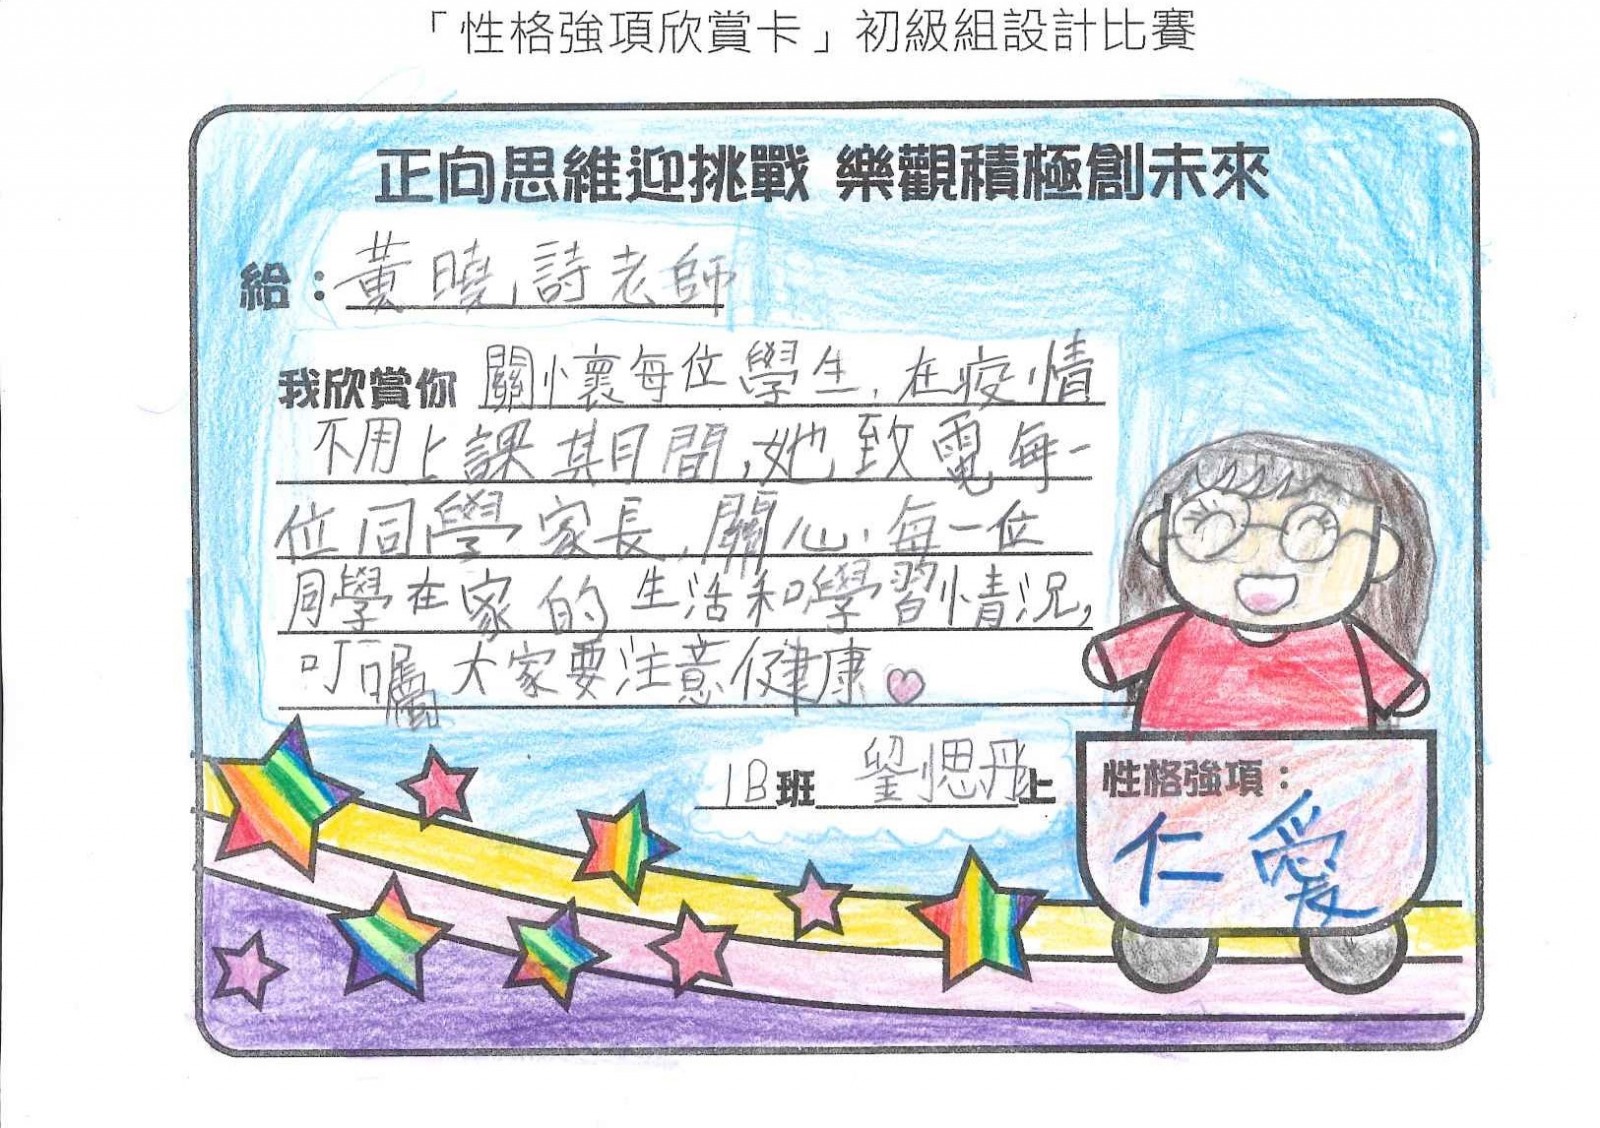 「性格強項欣賞卡」初級組設計比賽
正向思維迎挑戰 樂觀積極創未來
給：黃曉詩老師
我欣賞你 關懷每位學生，在疫情
不用上課其月間，她致電每一
位同學家長，關心每一位
同學在家的生活和學習情況，
叮囑大家要注意健康
1B班 劉思丹上
性格強項：
仁愛